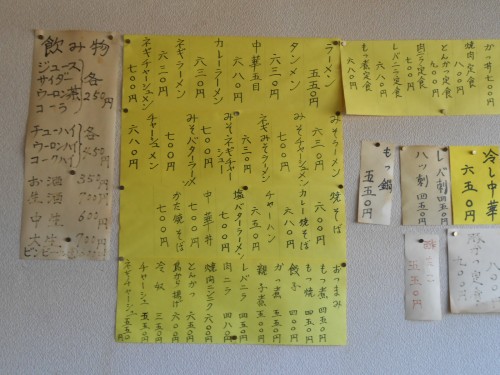 飲み物
ジュース
サイダー
ウーロン茶
コーラ
各
250円
チューハイ
ウーロンハイ
コークハイ
各
350円
お酒 350円
生酒 700円
中生 600円
大生 700円
ラーメン 五五〇円
タンメン 六三〇円
中華五目 六八〇円
カレーラーメン 六三〇円
ネギラーメン 六三〇円
ネギチャーシューメン 七〇〇円
みそラーメン 六三〇円
みそチャーシューメン 七〇〇円
ネギみそラーメン 六八〇円
みそネギチャーシュー 七〇〇円
みそバターラーメン 七〇〇円
チャーシュメン 六八〇円
焼そば
カレー焼そば 六八〇円
チャーハン 六五〇円
塩バターラーメン 七〇〇円
中華丼 七〇〇円
かた焼そば 七〇〇円
おつまみ
もつ煮 四五〇円
もつ焼 五五〇円
餃子 四〇〇円
かつ煮 七〇〇円
親子煮
レバニラ 四五〇円
肉ニラ 四八〇円
焼肉ニンニク 六〇〇円
とんかつ 六五〇円
鳥から揚げ 六〇〇円
冷奴 三五〇円
チャーシュ 五五〇円
ネギチャーシュ 五五〇円
かつ丼 七〇〇円
焼肉定食 八〇〇円
とんかつ定食 九〇〇円
肉ニラ定食 七〇〇円
レバニラ定食 六八〇円
もつ煮定食 六八〇円
冷し中華 六五〇円
レバ刺 四五〇円
ハツ刺 四五〇円
もつ鍋 五五〇円
五五〇円